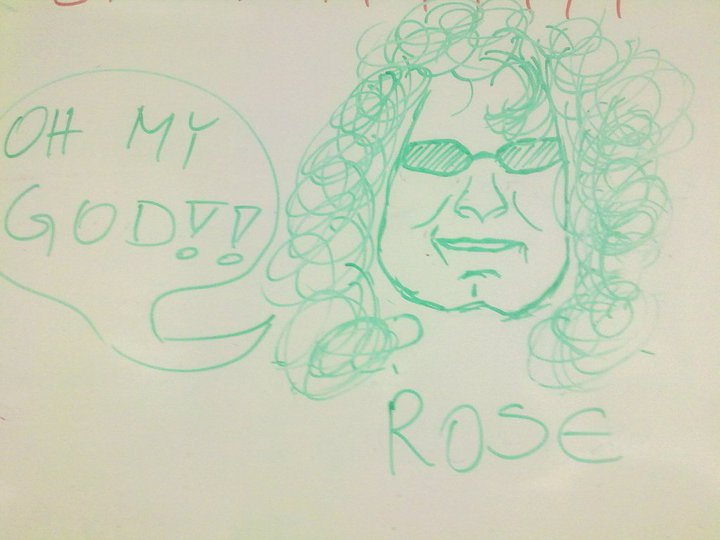 OH MY
GOD!!
ROSE